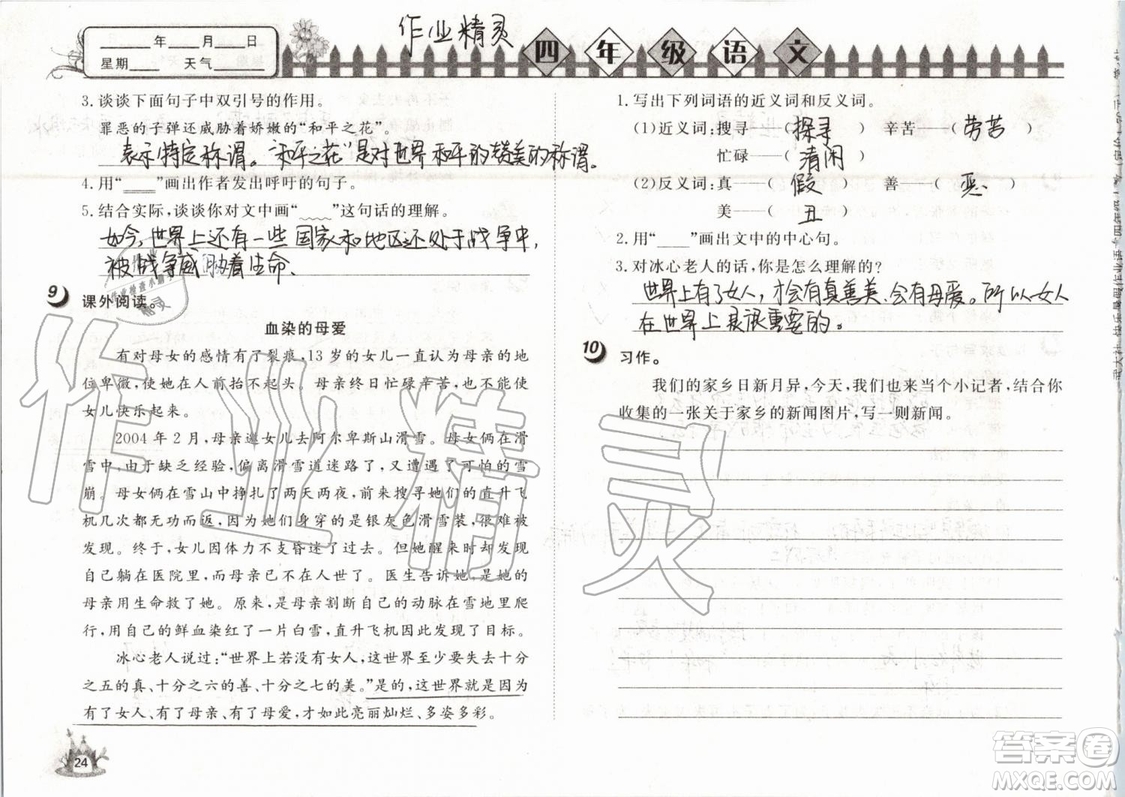 作业精灵
____年__月__日
星期____ 天气______
四年级语文
3.谈谈下面句子中双引号的作用。
罪恶的子弹还威胁着娇嫩的“和平之花”。
表示特定称谓。“和平之花”是对世界和平的赞美的称谓。
4.用“____”画出作者发出呼吁的句子。
5.结合实际,谈谈你对文中画“﹏﹏”这句话的理解。
如今,世界上还有一些国家和地区还处于战争中,
被战争威胁着生命.
9 课外阅读。
血染的母爱
有对母女的感情有了裂痕,13岁的女儿一直认为母亲的地
位卑微,使她很没面子。母亲终日忙碌辛苦,却总也不能使
女儿快乐起来。
2004年2月,母亲邀女儿去阿尔卑斯山滑雪。母女俩在滑
雪中,由于缺乏经验,偏离滑雪道迷路了,又遭遇了可怕的雪
崩。母女俩在雪山中挣扎了两天两夜,几次看到前来搜寻她们的直升
机几次都无功而返,因为她们身穿的是银灰色滑雪装,很难被
发现。终于,女儿因体力不支昏迷过去,醒来时发现
自己躺在医院里,而母亲已不在人世了。医生告诉她,是她的
母亲用生命救了她。是母亲割断自己的动脉在雪地里爬
行,用自己的鲜血染红了一片白雪,直升飞机因此发现了目标。
冰心老人说过:“世界上若没有女人,至少要失去十分
之五的真、十分之六的善、十分之七的美。”是的,这世界就是因为
有了女人、有了母亲、有了母爱,才如此亮丽灿烂、多姿多彩。
24
1.写出下列词语的近义词和反义词。
(1)近义词:搜寻——(探寻) 辛苦——(劳苦)
忙碌——(清闲)
(2)反义词:真——(假) 善——(恶)
美——(丑)
2.用“____”画出文中的中心句。
3.对冰心老人的话,你是怎么理解的?
世界上有了女人,才会有真善美,会有母爱。所以女人
在世界上是很重要的。
10 习作。
我们的家乡日新月异,今天,我们也来当个小记者,结合你
收集的一张关于家乡的新闻图片,写一则新闻。
作业精灵
答案卷
MXQE.COM